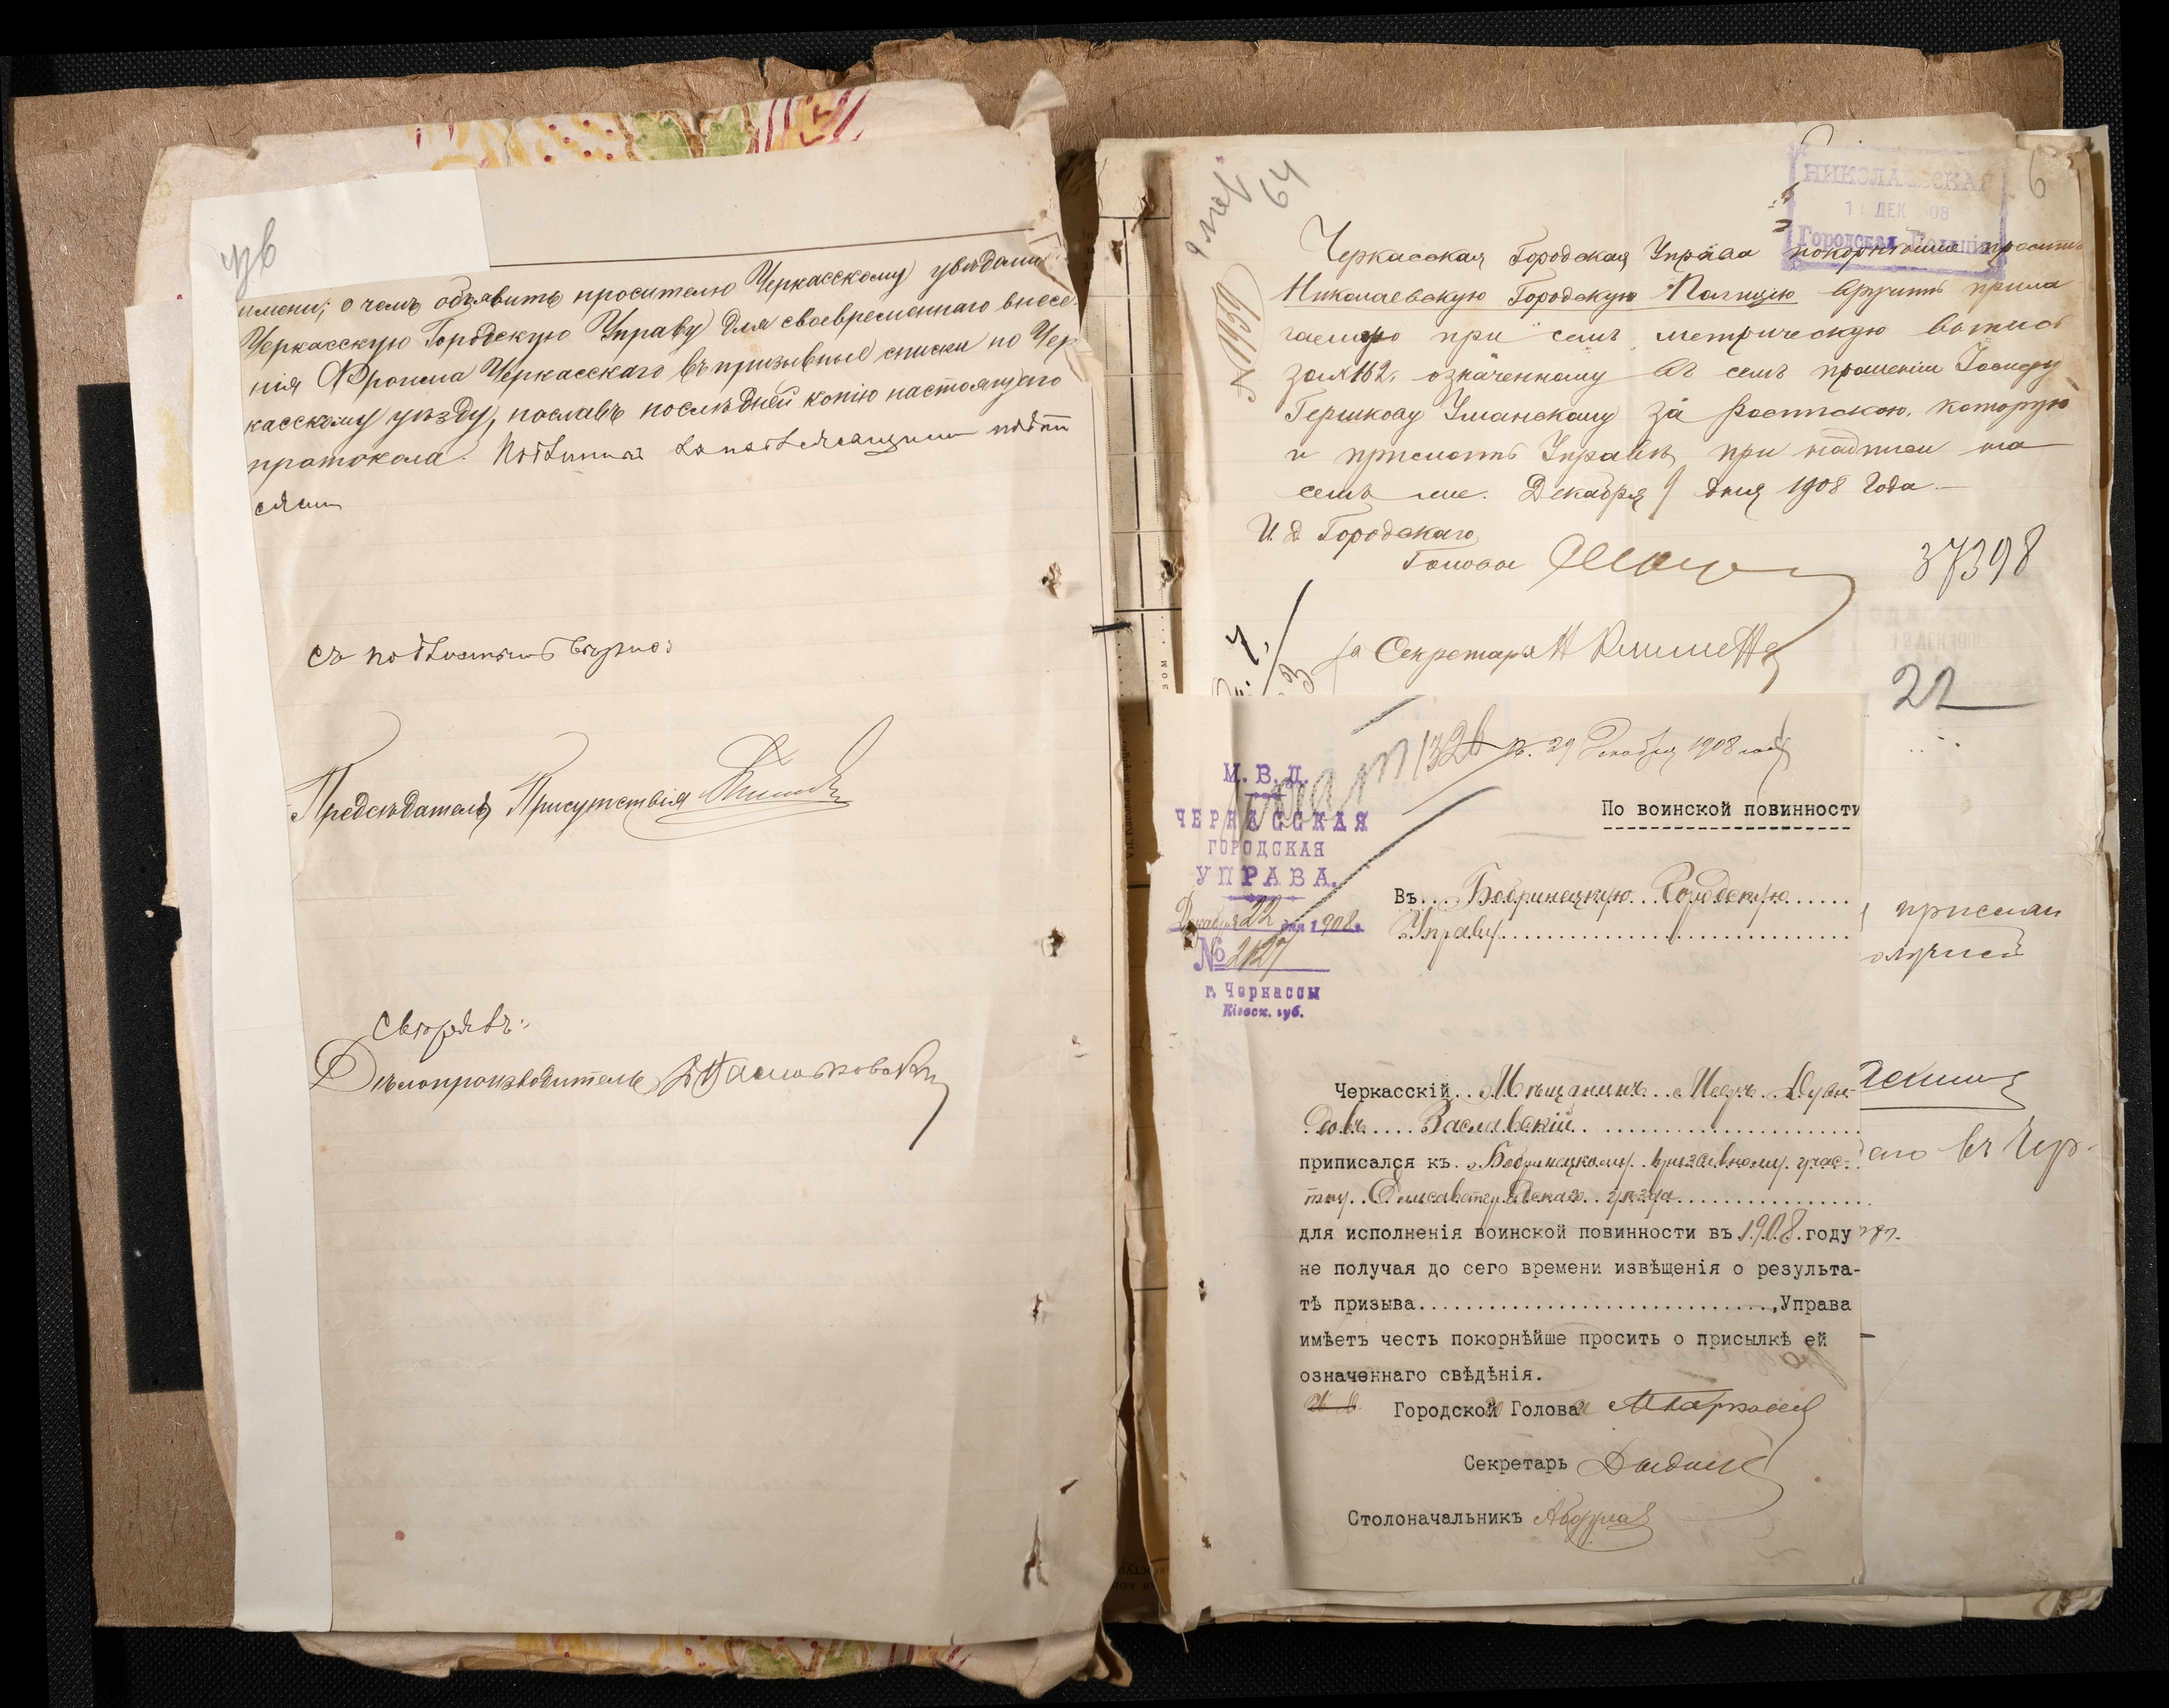 имени; о чемъ объявить просителю Черкасскому, увѣдоми
Черкасскую Городскую Управу для своевременнаго внесе-
нія Фроима Черкасскаго въ призывные списки по Чер
касскому уѣзду, пославъ послѣдней копію настоящаго
протокола. Подлинный за надлежащими подпи
сями
Съ подлиннымъ вѣрно:
Предсѣдатель Присутствія
Свѣрялъ:
Дѣлопроизводитель
64
6
НИКОЛАЕВСКАЯ
11 ДЕК 1908
Городская Полиція
№ 1959
Черкасская Городская Управа покорнѣйше проситъ
Николаевскую Городскую Полицію вручить прила
гаемую при семъ метрическую выпись
за № 162, означенному въ семъ прошеніи Іосифу
Гершкову Уманскому за роспискою, которую
и прислать Управѣ, при надписи на
семъ же. Декабря 9 дня 1908 года.
И. д. Городскаго
Головы
37398
За Секретаря
22
1326 п. 29 Декабря 1908 года
М. В. Д.
ЧЕРКАССКАЯ
ГОРОДСКАЯ
УПРАВА.
Декабря 22 дня 1908 г.
№ 2127
г. Черкассы
Кіевск. губ.
По воинской повинности
Въ Бобринецкую Городскую
Управу
Черкасскій Мѣщанинъ Мееръ
Заславскій
приписался къ Бобринецкому призывному учас-
тку Елисаветградскаго уѣзда
для исполненія воинской повинности въ 1908 году
не получая до сего времени извѣщенія о результа-
тѣ призыва, Управа
имѣетъ честь покорнѣйше просить о присылкѣ ей
означеннаго свѣдѣнія.
Городской Голова
Секретарь
Столоначальникъ